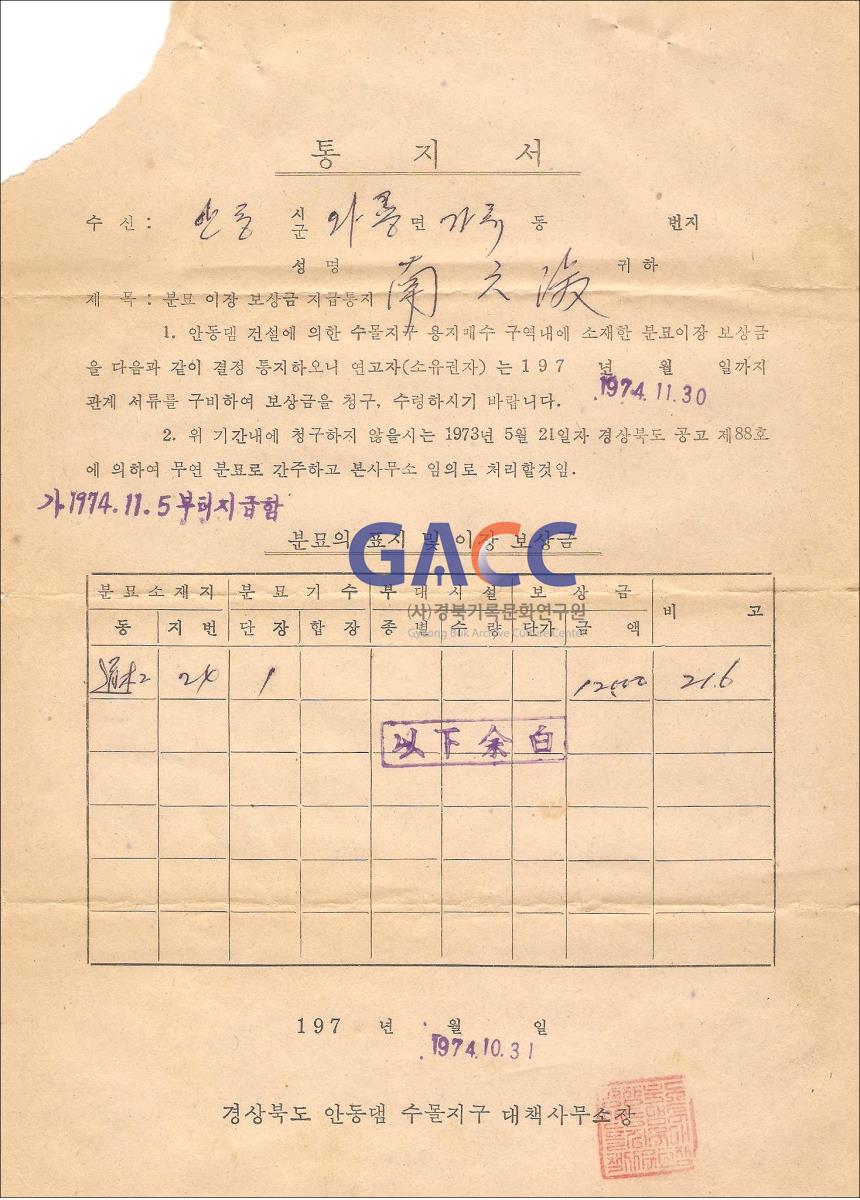 통 지 서
수 신 : 안동 시 군 와룡 면 가류 동 번지
성 명 南 귀 하
제 목 : 분묘 이장 보상금 지급통지
1. 안동댐 건설에 의한 수몰지구 용지매수 구역내에 소재한 분묘이장 보상금
을 다음과 같이 결정 통지하오니 연고자(소유권자) 는 197 년 월 일까지
1974.11.30
관계 서류를 구비하여 보상금을 청구, 수령하시기 바랍니다.
2. 위 기간내에 청구하지 않을시는 1973년 5월 21일자 경상북도 공고 제88호
에 의하여 무연 분묘로 간주하고 본사무소 임의로 처리할것임.
가 1974.11.5부터지급함
분묘의 표시 및 이장 보상금
GACC
(사)경북기록문화연구원
Gyeong Buk Archive Culture Center
분묘소재지 분묘기수 부대시설 보상금 비고
동 지번 단장 합장 종별 수량 단가 금액
24 1 12,000 21.6
以下余白
197 년 월 일
1974.10.31
경상북도 안동댐 수몰지구 대책사무소장